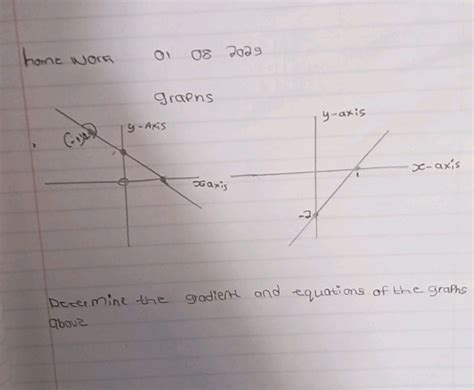 home work 01 08 2029
graphs
y-axis
y-Axis
x-axis
x-axis
1
-2
Determine the gradient and equations of the graphs
above